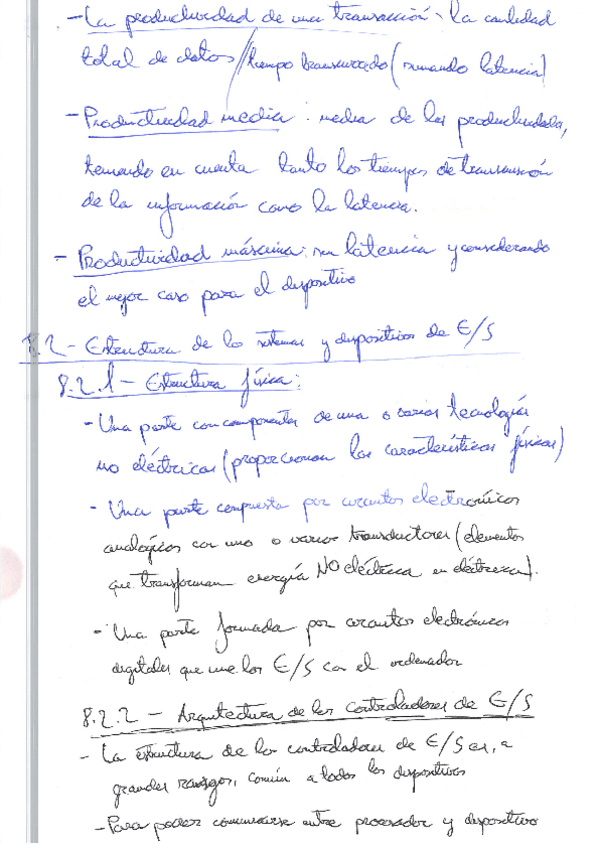 - La productividad de una transacción: la cantidad
total de datos // tiempo transcurrido (sumando latencia)
- Productividad media: media de las productividades,
teniendo en cuenta tanto los tiempos de transmisión
de la información como la latencia.
- Productividad máxima: sin latencia y considerando
el mejor caso para el dispositivo
8.2 - Estructura de los sistemas y dispositivos de E/S
8.2.1 - Estructura física:
- Una parte con componentes de una o varias tecnologías
no eléctricas (proporcionan las características físicas)
- Una parte compuesta por circuitos electrónicos
analógicos con uno o varios transductores (elementos
que transforman energía NO eléctrica en eléctrica).
- Una parte formada por circuitos electrónicos
digitales que une los E/S con el ordenador
8.2.2 - Arquitectura de los controladores de E/S
- La estructura de los controladores de E/S es, a
grandes rasgos, común a todos los dispositivos
- Para poder comunicarse entre procesador y dispositivo